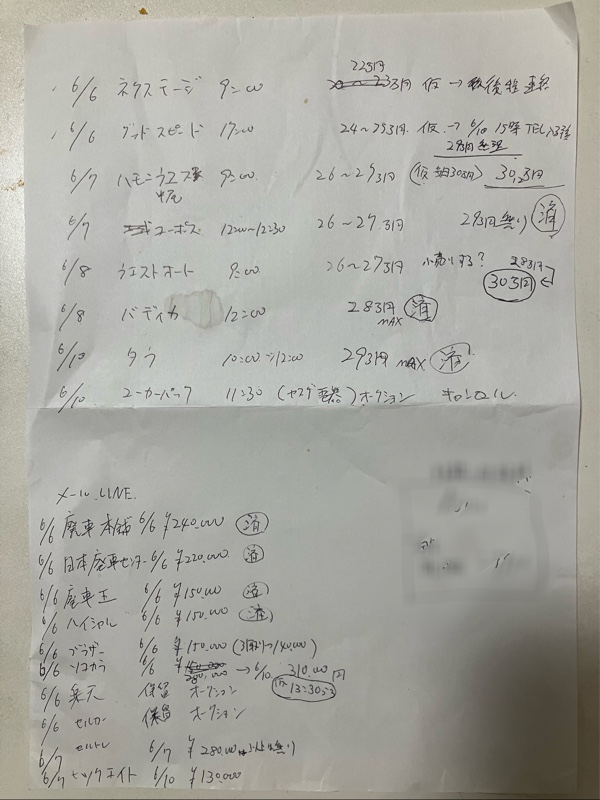 22万円
6/6 ネクステージ 9:00 20~23万円 仮 → 後程連絡
6/6 グッドスピード 17:00 24~25万円 仮 → 6/10 15時 TEL
29万円無理
6/7 ハモニウエスト 9:00 26~27万円 (仮 30万円) 30.5万円
6/7 ユーポス 12:00~12:30 26~27万円 29万円無り 済
6/8 ウエストオート 9:00 26~27万円 小売りする? 28万円
30万円
6/8 バディカ 12:00 28万円 MAX 済
6/10 タウ 10:00~12:00 29万円 MAX 済
6/10 ユーカーパック 11:30 オークション キャンセル
メール.LINE.
6/6 廃車本舗 6/6 ¥240,000 済
6/6 日本廃車センター 6/6 ¥220,000 済
6/6 廃車王 6/6 ¥150,000 済
6/6 ハイシャル 6/6 ¥150,000 済
6/6 ブラザー 6/6 ¥150,000 140,000)
6/6 ソコカラ 6/6 280,000 → 6/10 310.00円
仮 13:30
6/6 楽天 保留 オークション
6/6 セルカ 保留 オークション
6/7 セルトレ 6/7 ¥280,00 以上無り
6/7 6/10 ¥130,000